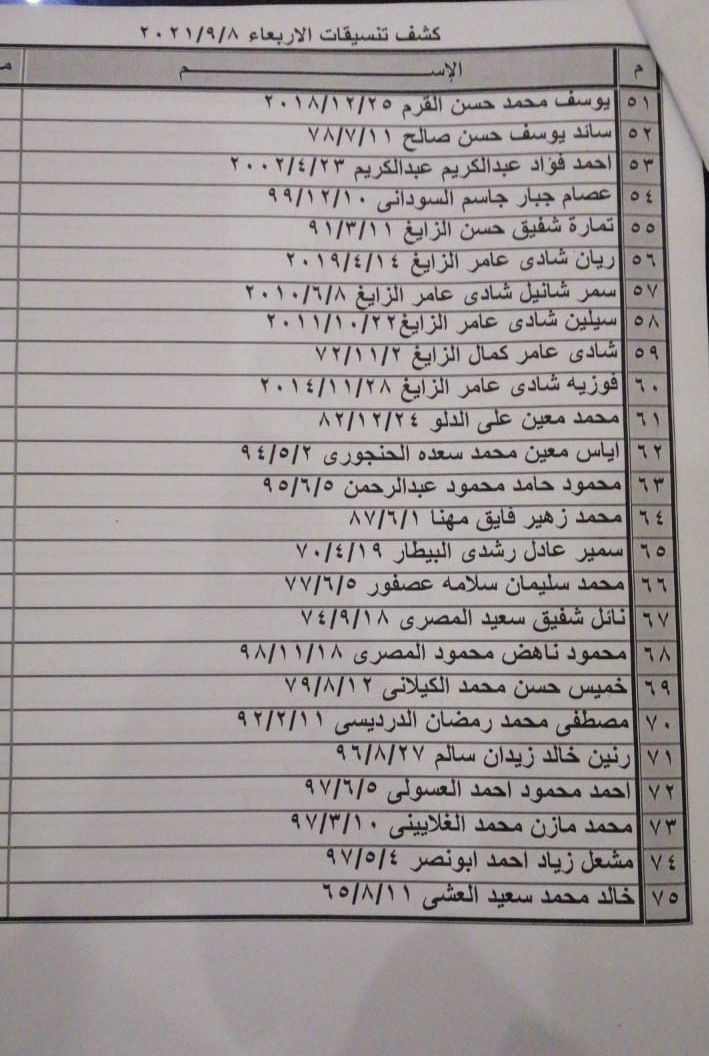 كشف تنسيقات الاربعاء ٢٠٢١/٩/٨
م الإســـــــــــــــــم م
٥١ يوسف محمد حسن القرم ٢٠١٨/١٢/٢٥
٥٢ سائد يوسف حسن صالح ٧٨/٧/١١
٥٣ احمد فؤاد عبدالكريم عبدالكريم ٢٠٠٢/٤/٢٣
٥٤ عصام جبار جاسم السودانى ٩٩/١٢/١٠
٥٥ تمارة شفيق حسن الزايغ ٩١/٣/١١
٥٦ ريان شادى عامر الزايغ ٢٠١٩/٤/١٤
٥٧ سمر شانيل شادى عامر الزايغ ٢٠١٠/٦/٨
٥٨ سيلين شادى عامر الزايغ٢٠١١/١٠/٢٢
٥٩ شادى عامر كمال الزايغ ٧٢/١١/٢
٦٠ فوزيه شادى عامر الزايغ ٢٠١٤/١١/٢٨
٦١ محمد معين على الدلو ٨٢/١٢/٢٤
٦٢ اياس معين محمد سعده الحنجورى ٩٤/٥/٢
٦٣ محمود حامد محمود عبدالرحمن ٩٥/٦/٥
٦٤ محمد زهير فايق مهنا ٨٧/٦/١
٦٥ سمير عادل رشدى البيطار ٧٠/٤/١٩
٦٦ محمد سليمان سلامه عصفور ٧٧/٦/٥
٦٧ نائل شفيق سعيد المصرى ٧٤/٩/١٨
٦٨ محمود ناهض محمود المصرى ٩٨/١١/١٨
٦٩ خميس حسن محمد الكيلانى ٧٩/٨/١٢
٧٠ مصطفى محمد رمضان الدرديسى ٩٢/٢/١١
٧١ رنين خالد زيدان سالم ٩٦/٨/٢٧
٧٢ احمد محمود احمد العسولى ٩٧/٦/٥
٧٣ محمد مازن محمد الغلايينى ٩٧/٣/١٠
٧٤ مشعل زياد احمد ابونصر ٩٧/٥/٤
٧٥ خالد محمد سعيد العشى ٦٥/٨/١١